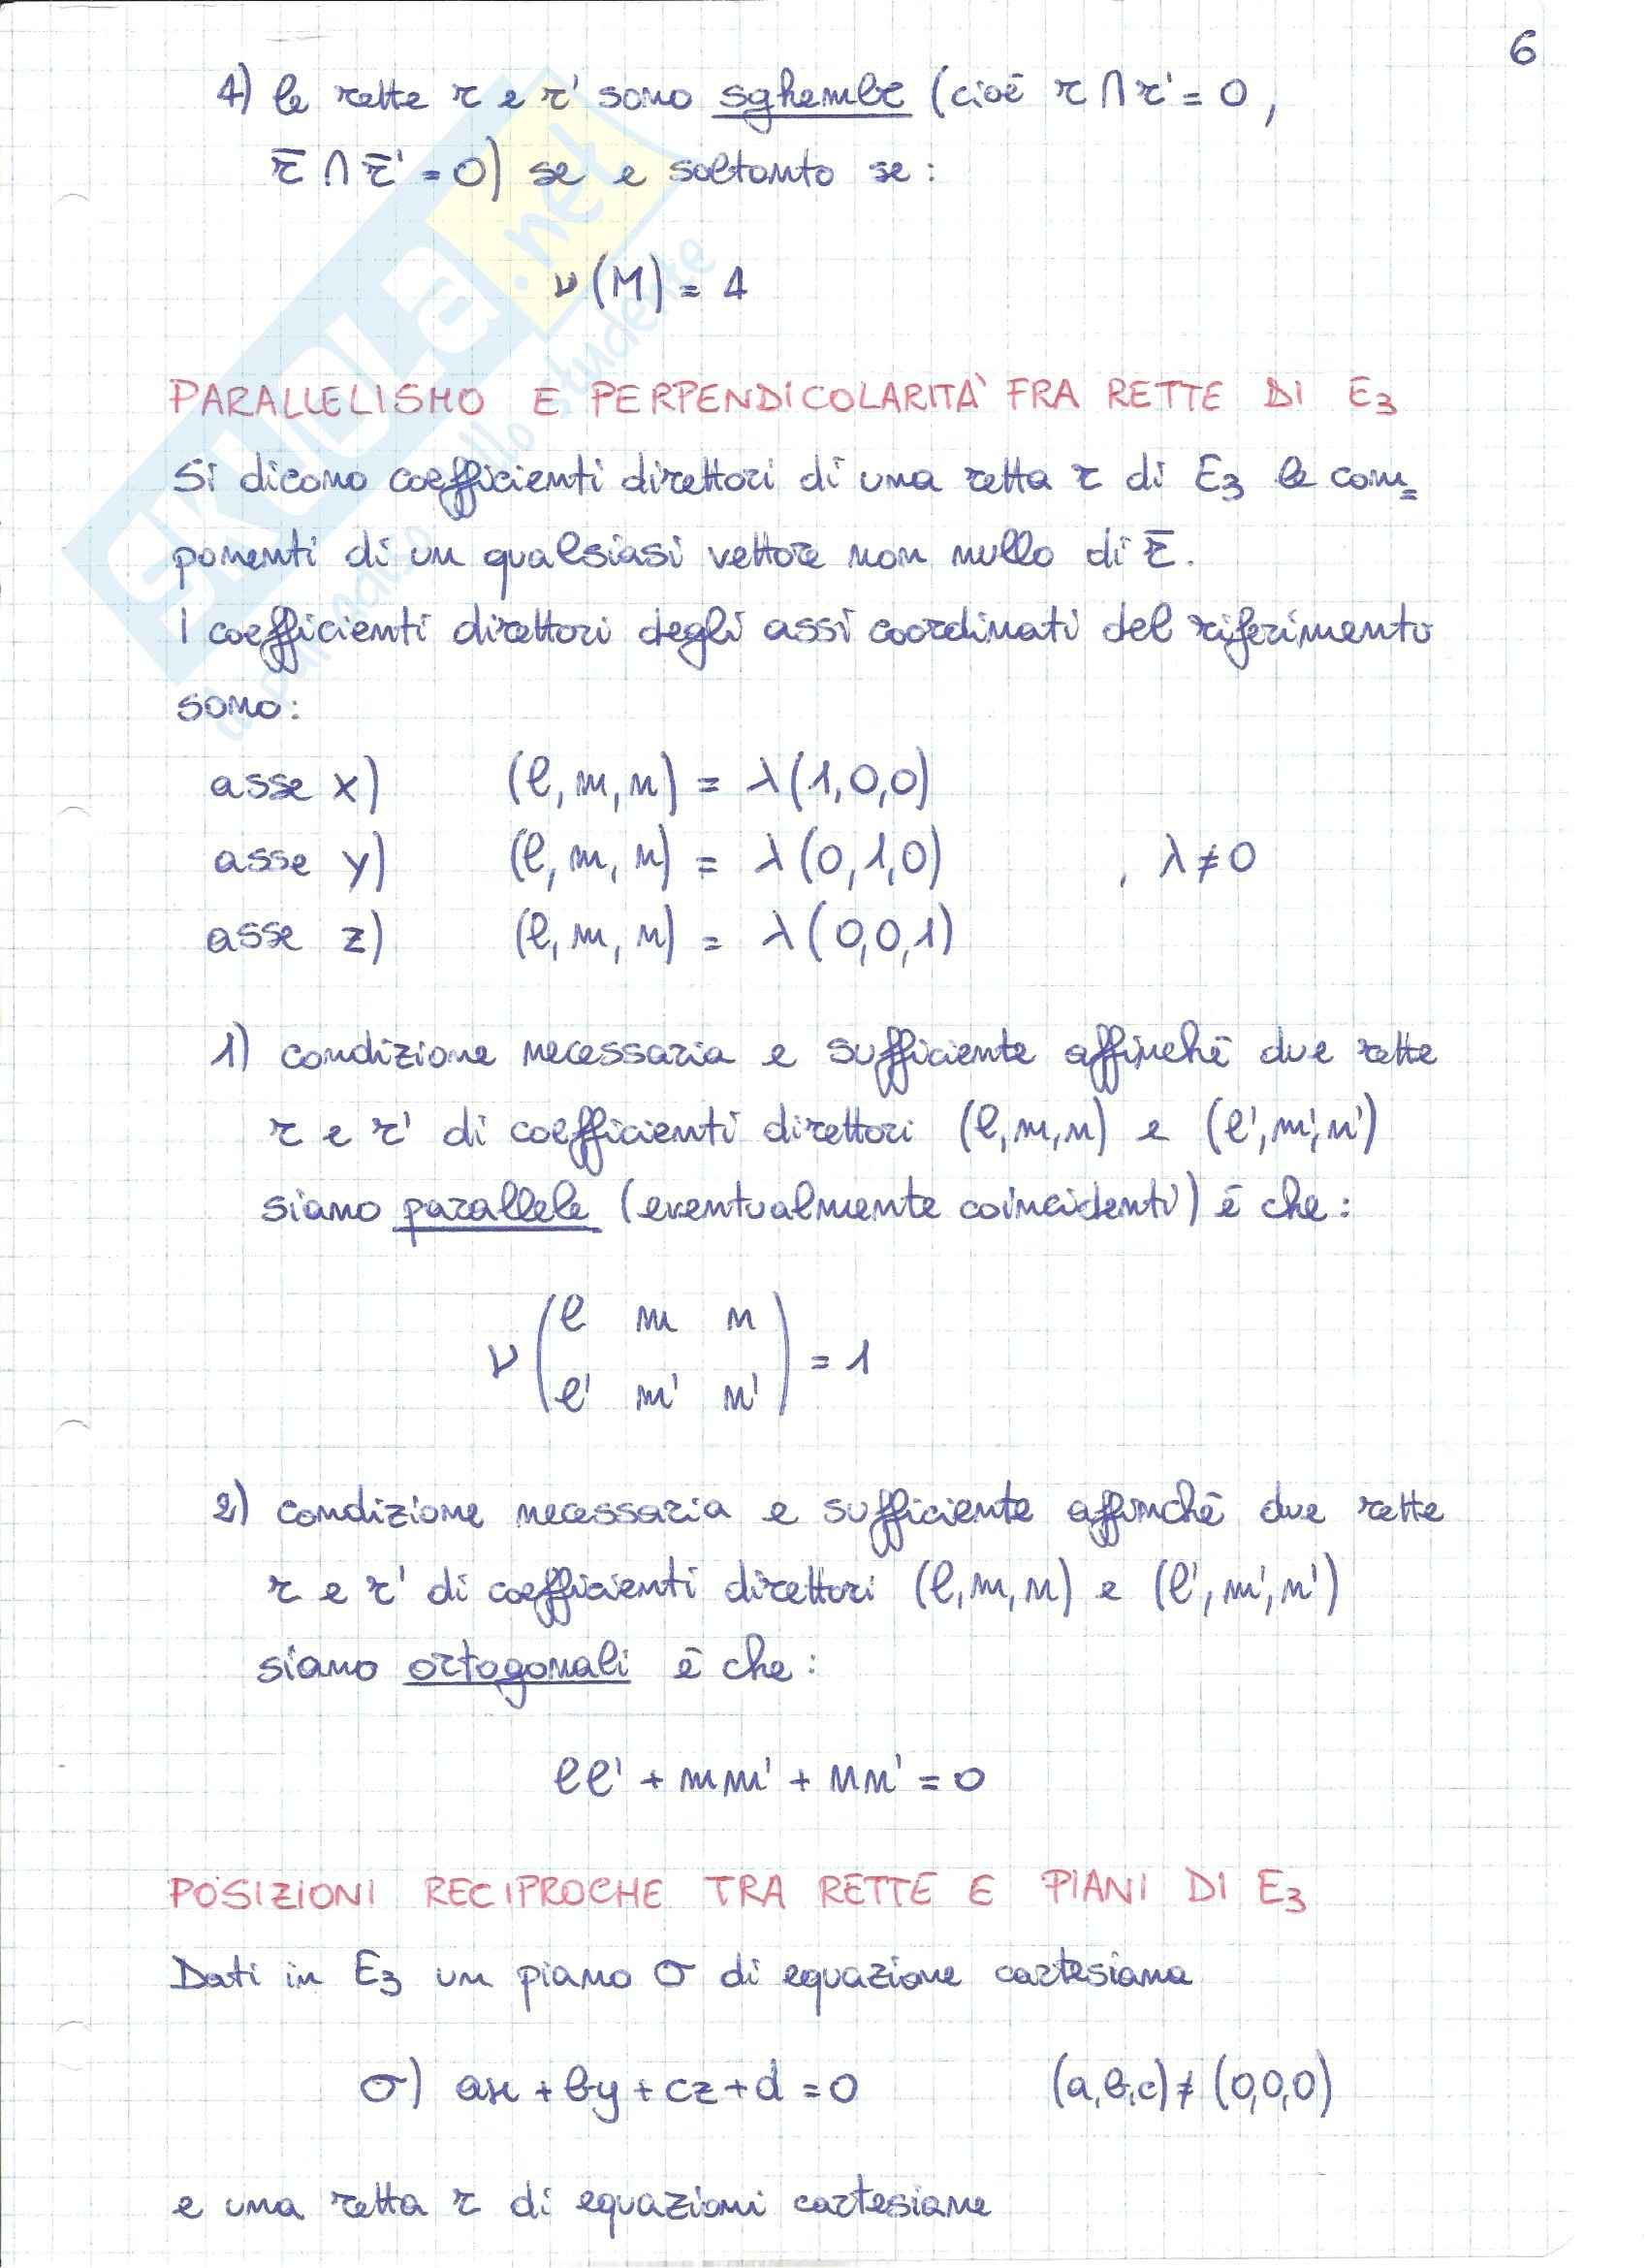 6
4) le rette r e r' sono sghembe (cioè r ∩ r' = 0,
r̄ ∩ r̄' = 0) se e soltanto se:
ν(M) = 4
PARALLELISMO E PERPENDICOLARITÀ FRA RETTE DI E₃
Si dicono coefficienti direttori di una retta r di E₃ le com=
ponenti di un qualsiasi vettore non nullo di r̄.
I coefficienti direttori degli assi coordinati del riferimento
sono:
asse x) (l, m, n) = λ(1,0,0)
asse y) (l, m, n) = λ(0,1,0) , λ≠0
asse z) (l, m, n) = λ(0,0,1)
1) condizione necessaria e sufficiente affinché due rette
r e r' di coefficienti direttori (l,m,n) e (l',m',n')
siano parallele (eventualmente coincidenti) è che:
ν ( l m n
l' m' n' ) = 1
2) condizione necessaria e sufficiente affinché due rette
r e r' di coefficienti direttori (l,m,n) e (l',m',n')
siano ortogonali è che:
ll' + mm' + nn' = 0
POSIZIONI RECIPROCHE TRA RETTE E PIANI DI E₃
Dati in E₃ un piano σ di equazione cartesiana
σ) ax + by + cz + d = 0 (a,b,c) ≠ (0,0,0)
e una retta r di equazioni cartesiane
SKUOLA.net